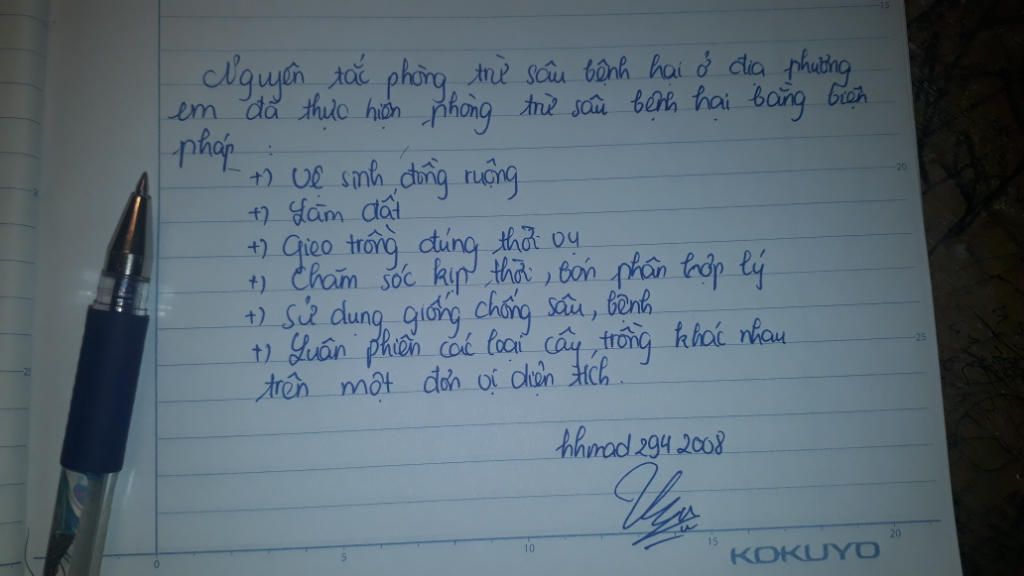 Nguyên tắc phòng trừ sâu bệnh hai ở địa phương
em đã thực hiện phòng trừ sâu bệnh hại bằng biện
pháp :
+) Vệ sinh đồng ruộng
+) Làm đất
+) Gieo trồng đúng thời vụ
+) Chăm sóc kịp thời, bón phân hợp lý
+) Sử dụng giống chống sâu, bệnh
+) Luân phiên các loại cây trồng khác nhau
trên một đơn vị diện tích.
hhmad2942008
KOKUYO
15
20
25
0 5 10 15 20